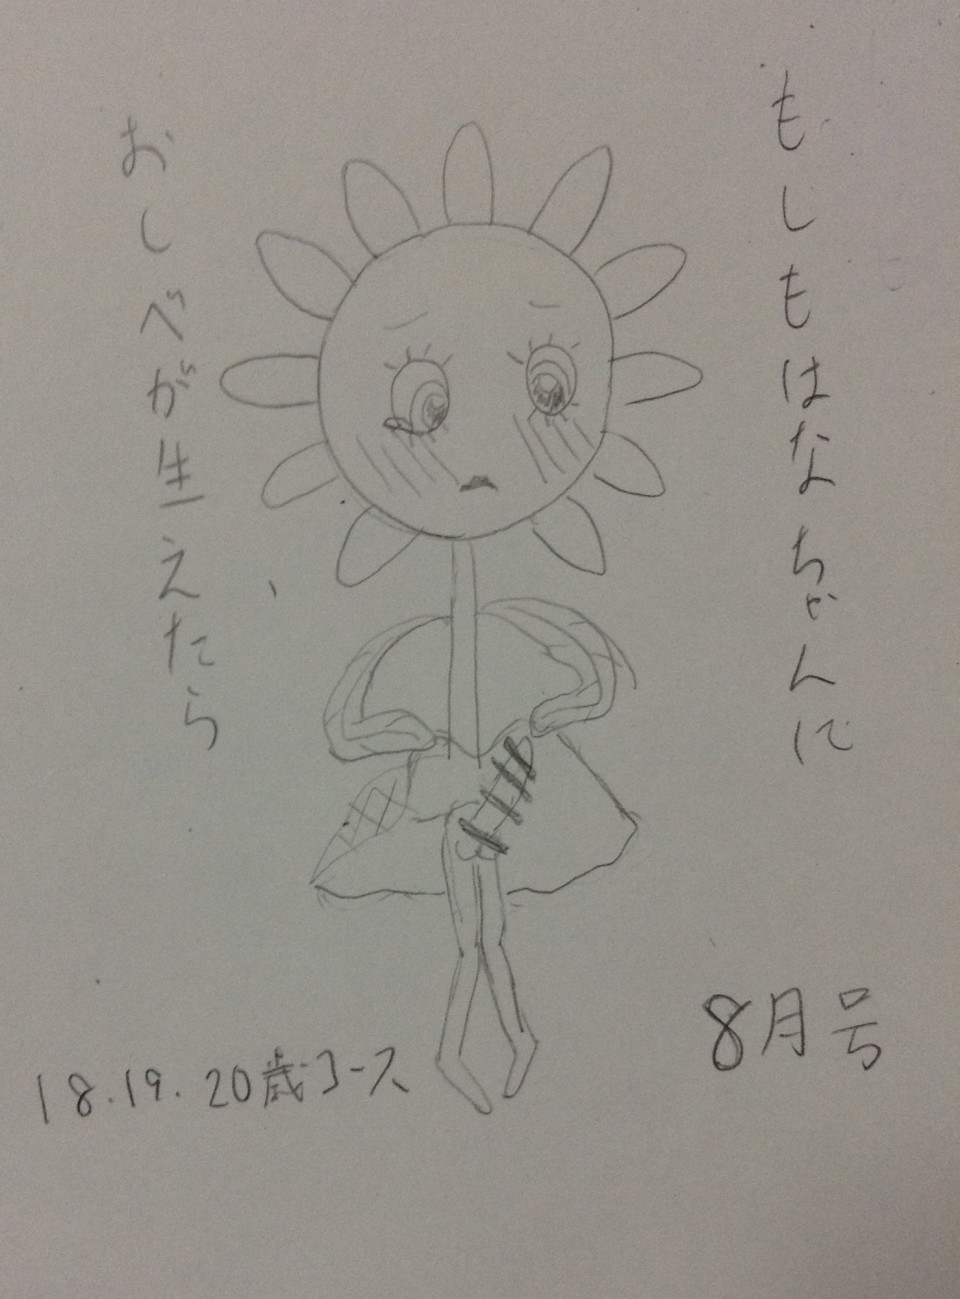 もしもはなちゃんに
おしべが生えたら
8月号
18.19.20歳コース